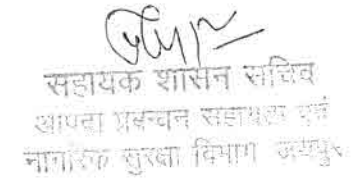 सहायक शासन सचिव
आपदा प्रबन्धन सहायता एवं
नागरिक सुरक्षा विभाग जयपुर